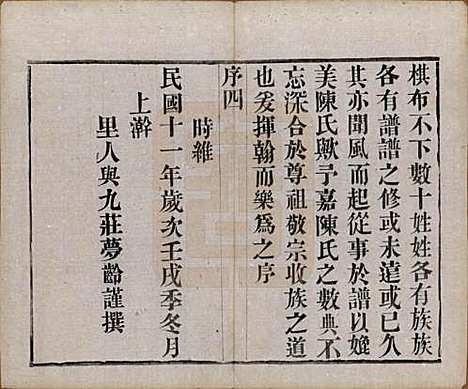 棋布不下數十姓姓各有族族
各有譜譜之修或未遑或已久
其亦聞風而起從事於譜以媲
美陳氏歟予嘉陳氏之數典不
忘深合於尊祖敬宗收族之道
也爰揮翰而樂為之序
序四
時維
民國十一年歲次壬戌季冬月
上澣
里人與九莊夢齡謹撰